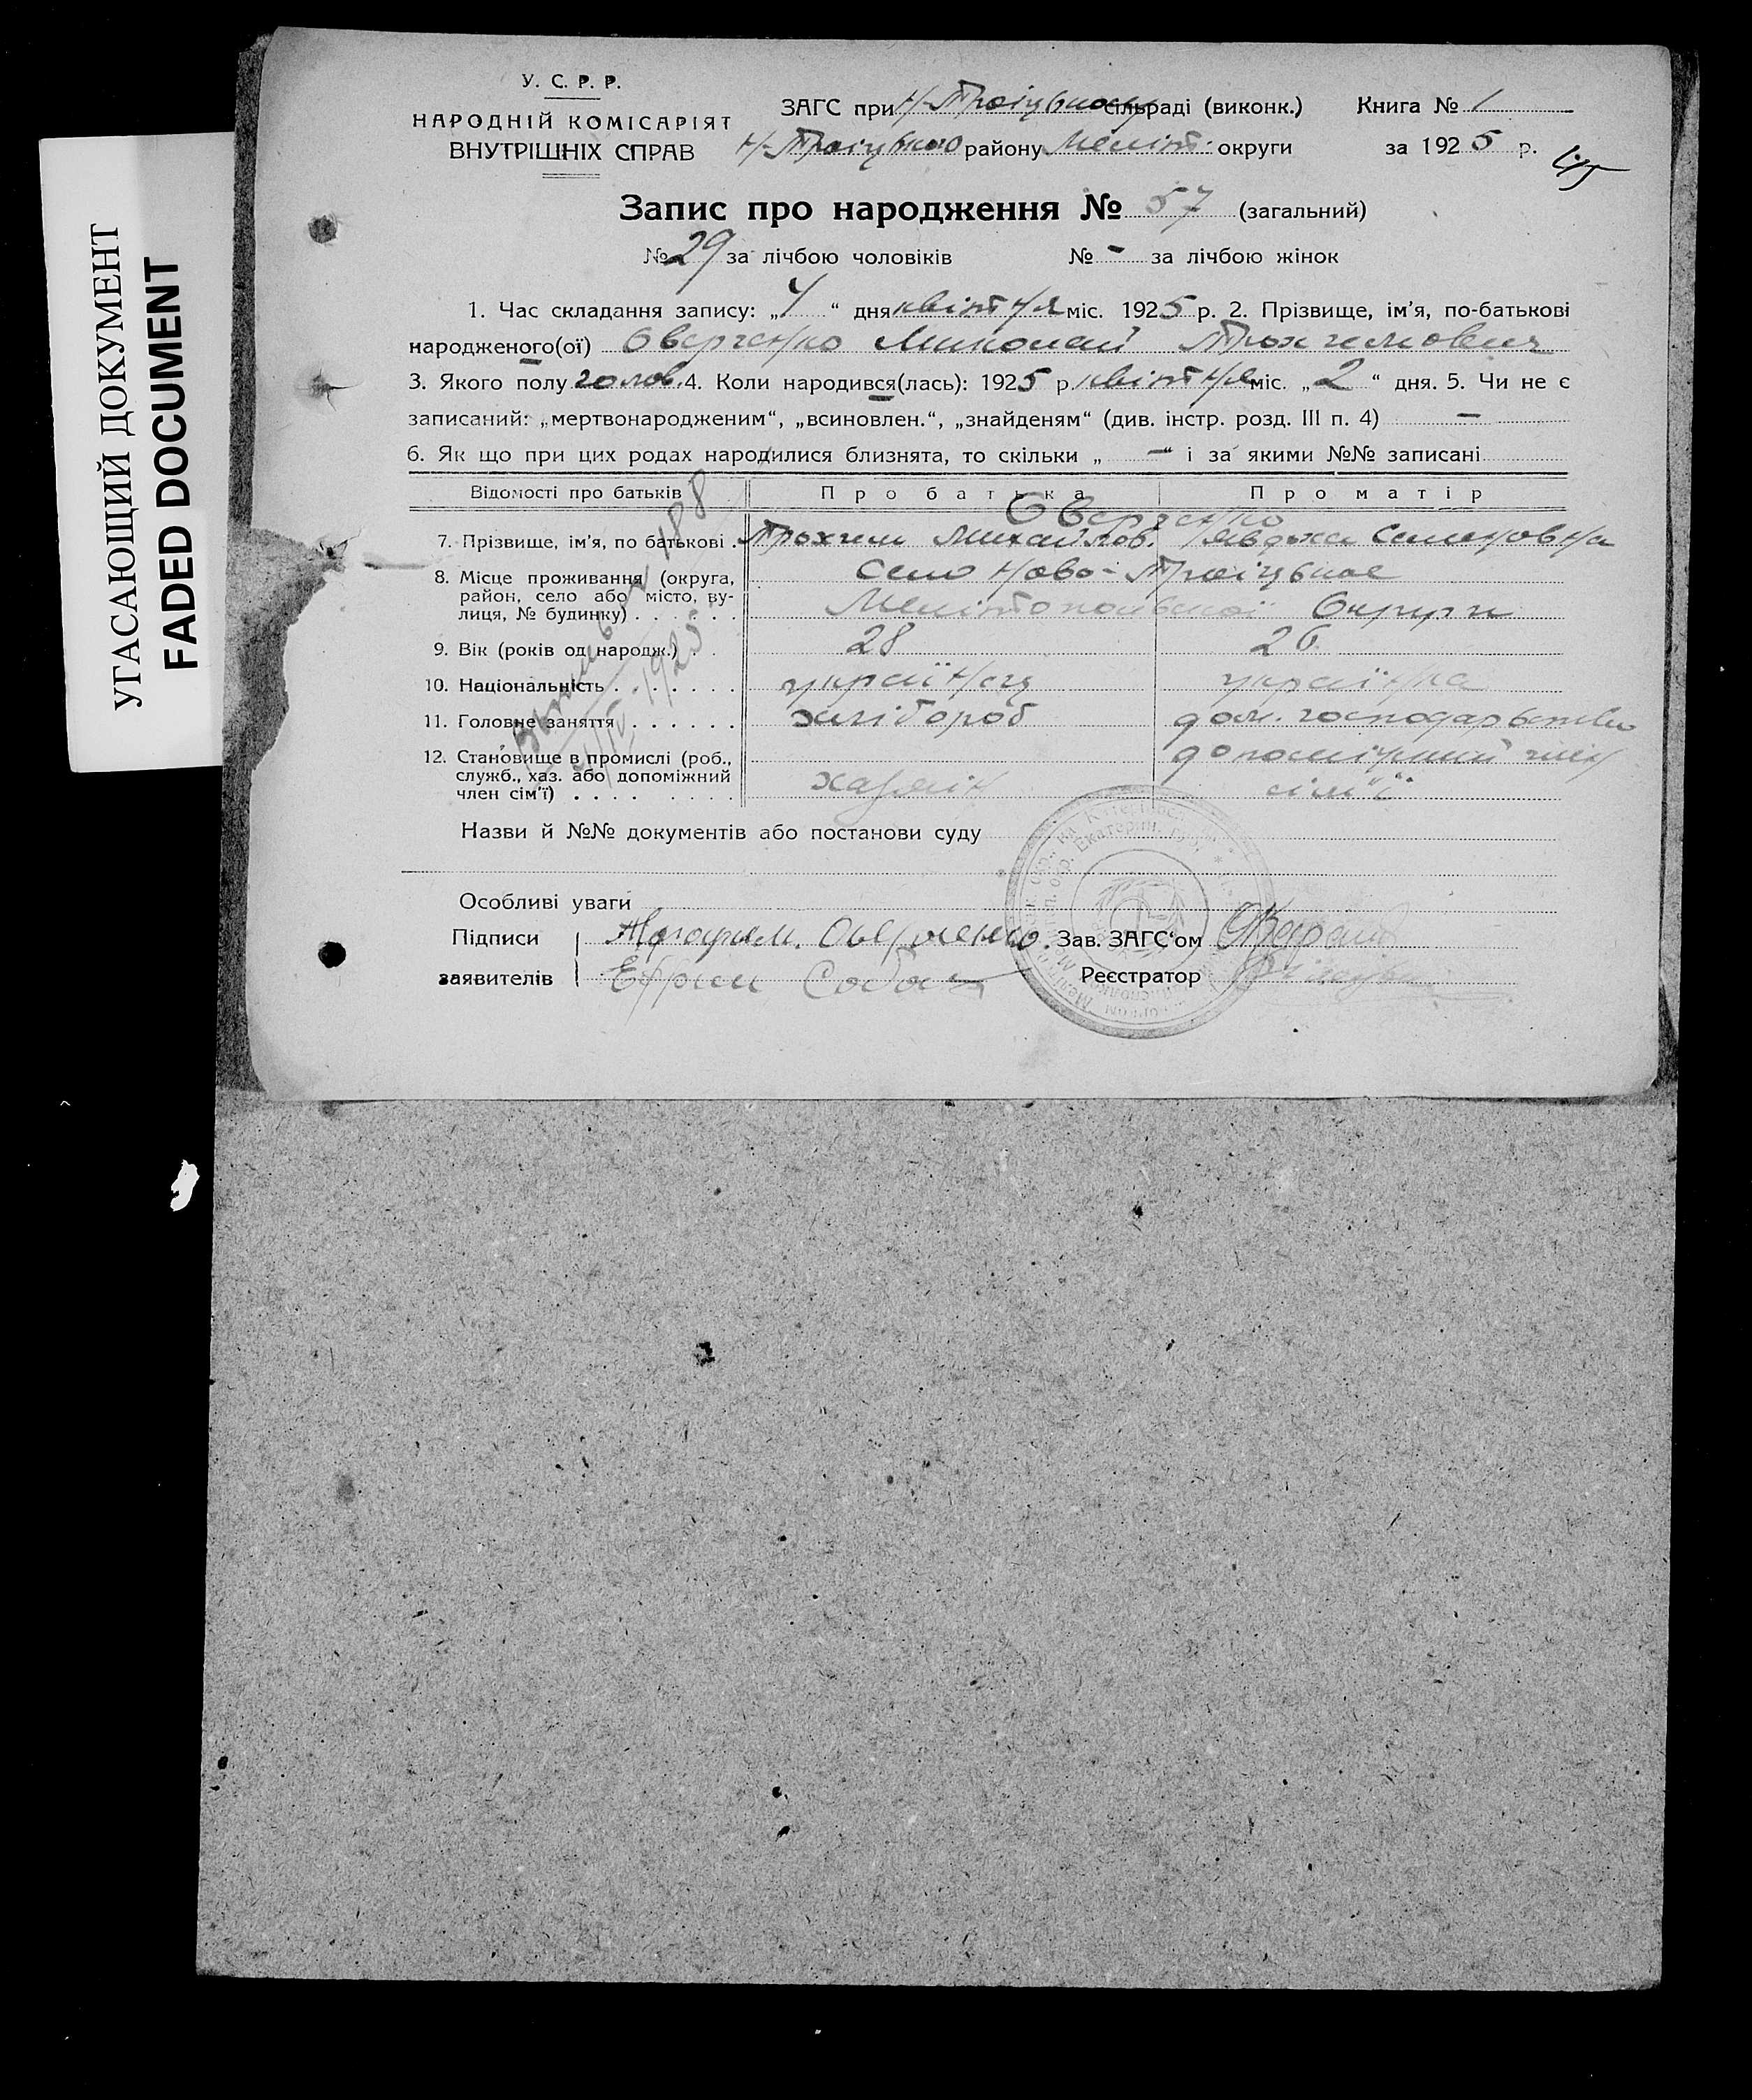 УГАСАЮЩИЙ ДОКУМЕНТ
FADED DOCUMENT
У. С. Р. Р.
НАРОДНІЙ КОМІСАРІЯТ
ВНУТРІШНІХ СПРАВ
ЗАГС при Н-Троіцькому сільраді (виконк.) Книга № 1
Н-Троіцького району Меліт. округи за 1925 р.
Запис про народження № 57 (загальний)
№ 29 за лічбою чоловіків № - за лічбою жінок
1. Час складання запису: „4“ дня квітня міс. 1925 р. 2. Прізвище, ім'я, по-батькові
народженого(ої) Оверченко Миколай Трохимович
3. Якого полу чолов. 4. Коли народився(лась): 1925 р. квітня міс. „2“ дня. 5. Чи не є
записаний: „мертвонародженим“, „всиновлен.“, „знайденям“ (див. інстр. розд. III п. 4) —
6. Як що при цих родах народилися близнята, то скільки „ —“ і за якими №№ записані
Відомості про батьків Про батька Про матір
Оверченко
7. Прізвище, ім'я, по батькові . Трохим Михайлов. Явдоха Семеновна
8. Місце проживання (округа, село Ново-Троіцькое
район, село або місто, ву-
лиця, № будинку) . . . . . . Мелітопольської Округи
9. Вік (років од народж.) . . 28 26.
10. Національність . . . . . . . українец українка
11. Головне заняття . . . . . . хлібороб дом. господарьство
12. Становище в промислі (роб., допоміжний член
служб., хаз. або допоміжний
член сім'ї) . . . . . . . . . хазяін сім'ї
488
1925
Назви й №№ документів або постанови суду
Особливі уваги
Підписи Оверченко. Зав. ЗАГС'ом
заявителів Ефрем Собач Реєстратор